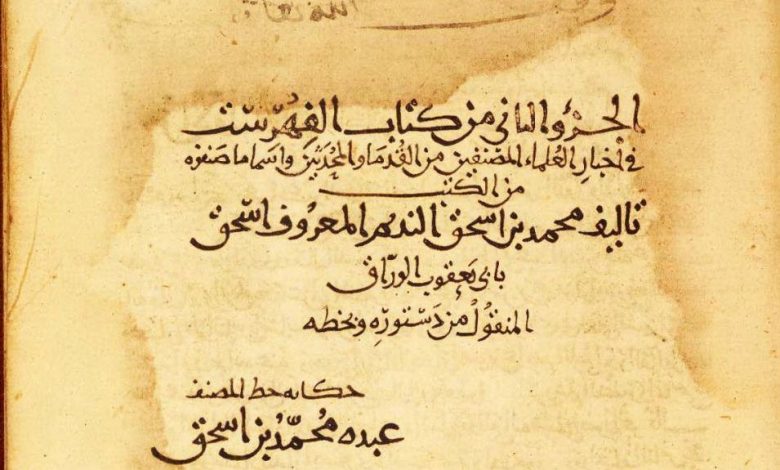 الله تعالى
الجزؤ الثاني من كتاب الفهرست
في اخبار العلماء المصنفين من القدما والمحدثين واسما ما صنفوه
من الكتب
تاليف محمد بن اسحق النديم المعروف اسحق
بابي يعقوب الوراق
المنقول من دستوره وبخطه
حكاية خط المصنف
عبده محمد بن اسحق